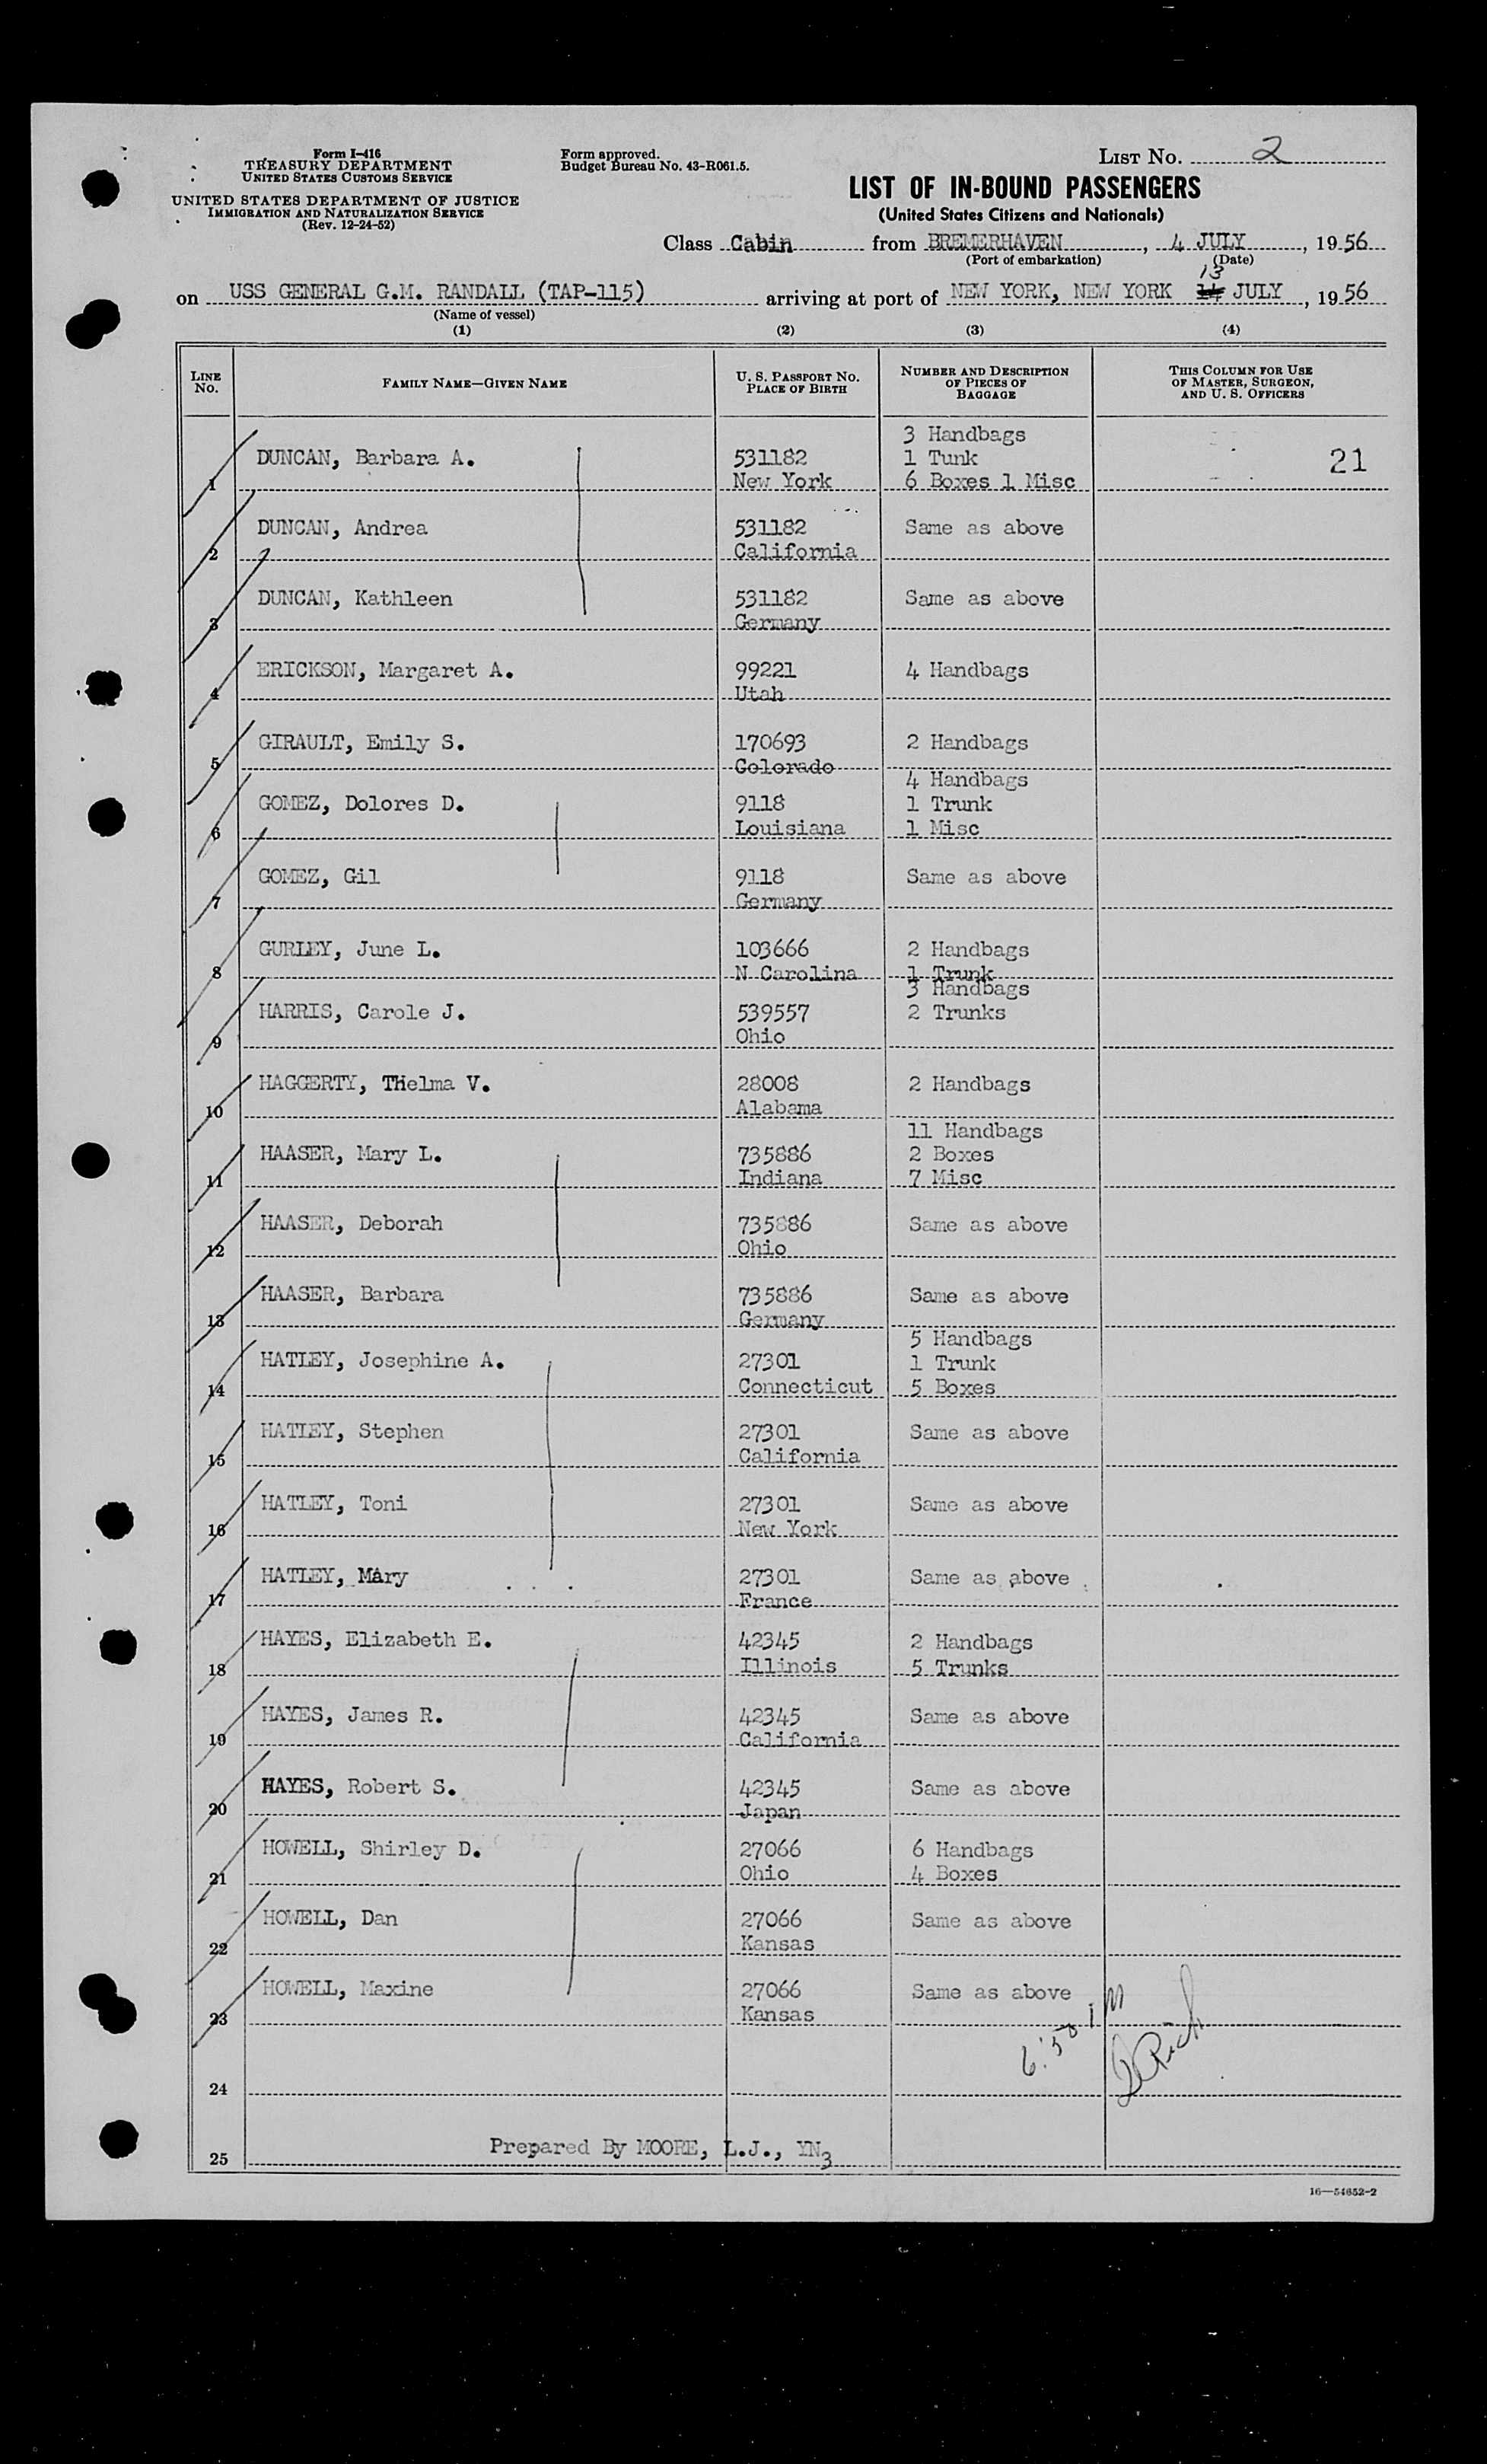 Form I-416
TREASURY DEPARTMENT
UNITED STATES CUSTOMS SERVICE
UNITED STATES DEPARTMENT OF JUSTICE
IMMIGRATION AND NATURALIZATION SERVICE
(Rev. 12-24-52)
Form approved.
Budget Bureau No. 43-R061.5.
LIST NO. 2
LIST OF IN-BOUND PASSENGERS
(United States Citizens and Nationals)
Class Cabin from BREMERHAVEN, 4 JULY, 1956
(Port of embarkation) (Date)
13
on USS GENERAL G.M. RANDALL (TAP-115) arriving at port of NEW YORK, NEW YORK 14 JULY, 1956
(Name of vessel)
(1) (2) (3) (4)
LINE NO. FAMILY NAME—GIVEN NAME U. S. PASSPORT NO. PLACE OF BIRTH NUMBER AND DESCRIPTION OF PIECES OF BAGGAGE THIS COLUMN FOR USE OF MASTER, SURGEON, AND U. S. OFFICERS
3 Handbags
DUNCAN, Barbara A. 531182 1 Tunk 21
1 New York 6 Boxes 1 Misc
DUNCAN, Andrea 531182 Same as above
2 California
DUNCAN, Kathleen 531182 Same as above
3 Germany
ERICKSON, Margaret A. 99221 4 Handbags
4 Utah
GIRAULT, Emily S. 170693 2 Handbags
5 Colorado
4 Handbags
GOMEZ, Dolores D. 9118 1 Trunk
6 Louisiana 1 Misc
GOMEZ, Gil 9118 Same as above
7 Germany
GURLEY, June L. 103666 2 Handbags
8 N Carolina 1 Trunk
3 Handbags
HARRIS, Carole J. 539557 2 Trunks
9 Ohio
HAGGERTY, Thelma V. 28008 2 Handbags
10 Alabama
11 Handbags
HAASER, Mary L. 735886 2 Boxes
11 Indiana 7 Misc
HAASER, Deborah 735886 Same as above
12 Ohio
HAASER, Barbara 735886 Same as above
13 Germany
5 Handbags
HATLEY, Josephine A. 27301 1 Trunk
14 Connecticut 5 Boxes
HATLEY, Stephen 27301 Same as above
15 California
HATLEY, Toni 27301 Same as above
16 New York
HATLEY, Mary 27301 Same as above
17 France
HAYES, Elizabeth E. 42345 2 Handbags
18 Illinois 5 Trunks
HAYES, James R. 42345 Same as above
19 California
HAYES, Robert S. 42345 Same as above
20 Japan
HOWELL, Shirley D. 27066 6 Handbags
21 Ohio 4 Boxes
HOWELL, Dan 27066 Same as above
22 Kansas
HOWELL, Maxine 27066 Same as above
23 Kansas
24
Prepared By MOORE, L.J., YN3
25
16—54652-2